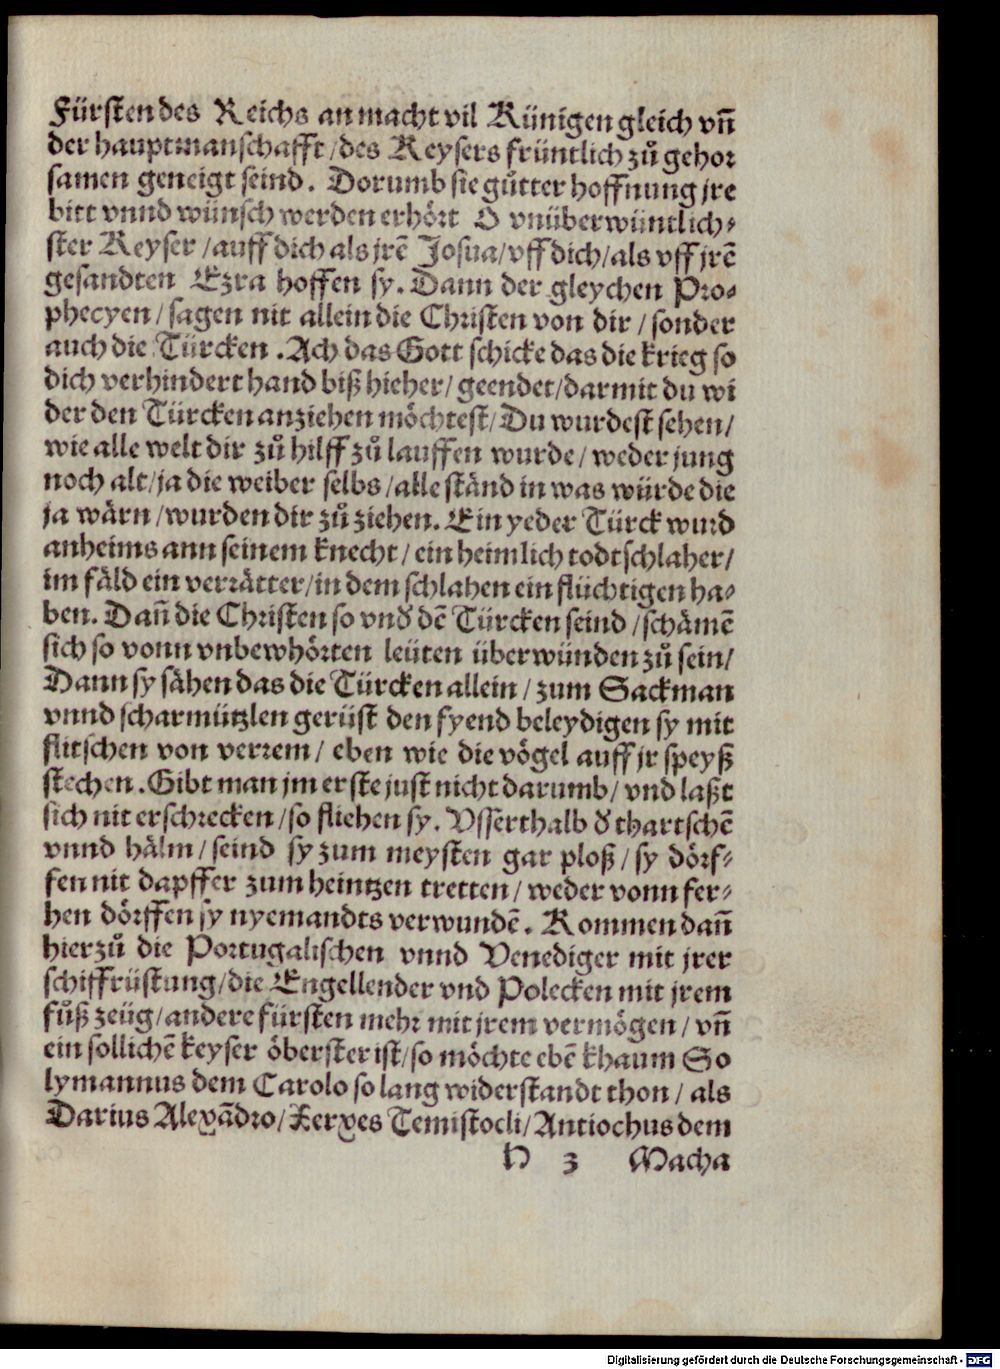 Fürsten des Reichs an macht vil Künigen gleich vñ
der hauptmanschafft / des Keysers früntlich zů gehor
samen geneigt seind. Dorumb sie gůtter hoffnung jre
bitt vnnd wünsch werden erhört O vnüberwüntlich-
ster Keyser / auff dich als jrē Josua / vff dich / als vff jrē
gesandten Ezra hoffen sy. Dann der gleychen Pro-
phecyen / sagen nit allein die Christen von dir / sonder
auch die Türcken. Ach das Gott schicke das die krieg so
dich verhindert hand biß hieher / geendet / darmit du wi
der den Türcken anziehen möchtest / Du wurdest sehen /
wie alle welt dir zů hilff zů lauffen wurde / weder jung
noch alt / ja die weiber selbs / alle ständ in was würde die
ja wärn / wurden dir zů ziehen. Ein yeder Türck wurd
anheims ann seinem knecht / ein heimlich todtschlaher /
im fäld ein verrätter / in dem schlahen ein flüchtigen ha-
ben. Dañ die Christen so vnd̕ dē Türcken seind / schämē
sich so vonn vnbewhörten leüten überwünden zů sein /
Dann sy sähen das die Türcken allein / zum Sackman
vnnd scharmützlen gerüst den fyend beleydigen sy mit
flitschen von verrem / eben wie die vögel auff jr speyß
stechen. Gibt man jm erste just nicht darumb / vnd laßt
sich nit erschrecken / so fliehen sy. Vsserthalb d̕ thartschē
vnnd hälm / seind sy zum meysten gar ploß / sy dörf-
fen nit dapffer zum heintzen tretten / weder vonn fer-
hen dörffen sy nyemandts verwundē. Kommen dañ
hierzů die Portugalischen vnnd Venediger mit jrer
schiffrüstung / die Engellender vnd Polecken mit jrem
fůß zeüg / andere fürsten mehr mit jrem vermögen / vñ
ein sollichē keyser öberster ist / so möchte ebē khaum So
lymannus dem Carolo so lang widerstandt thon / als
Darius Alexādro / Xerxes Temistocli / Antiochus dem
H 3 Macha
Digitalisierung gefördert durch die Deutsche Forschungsgemeinschaft - DFG